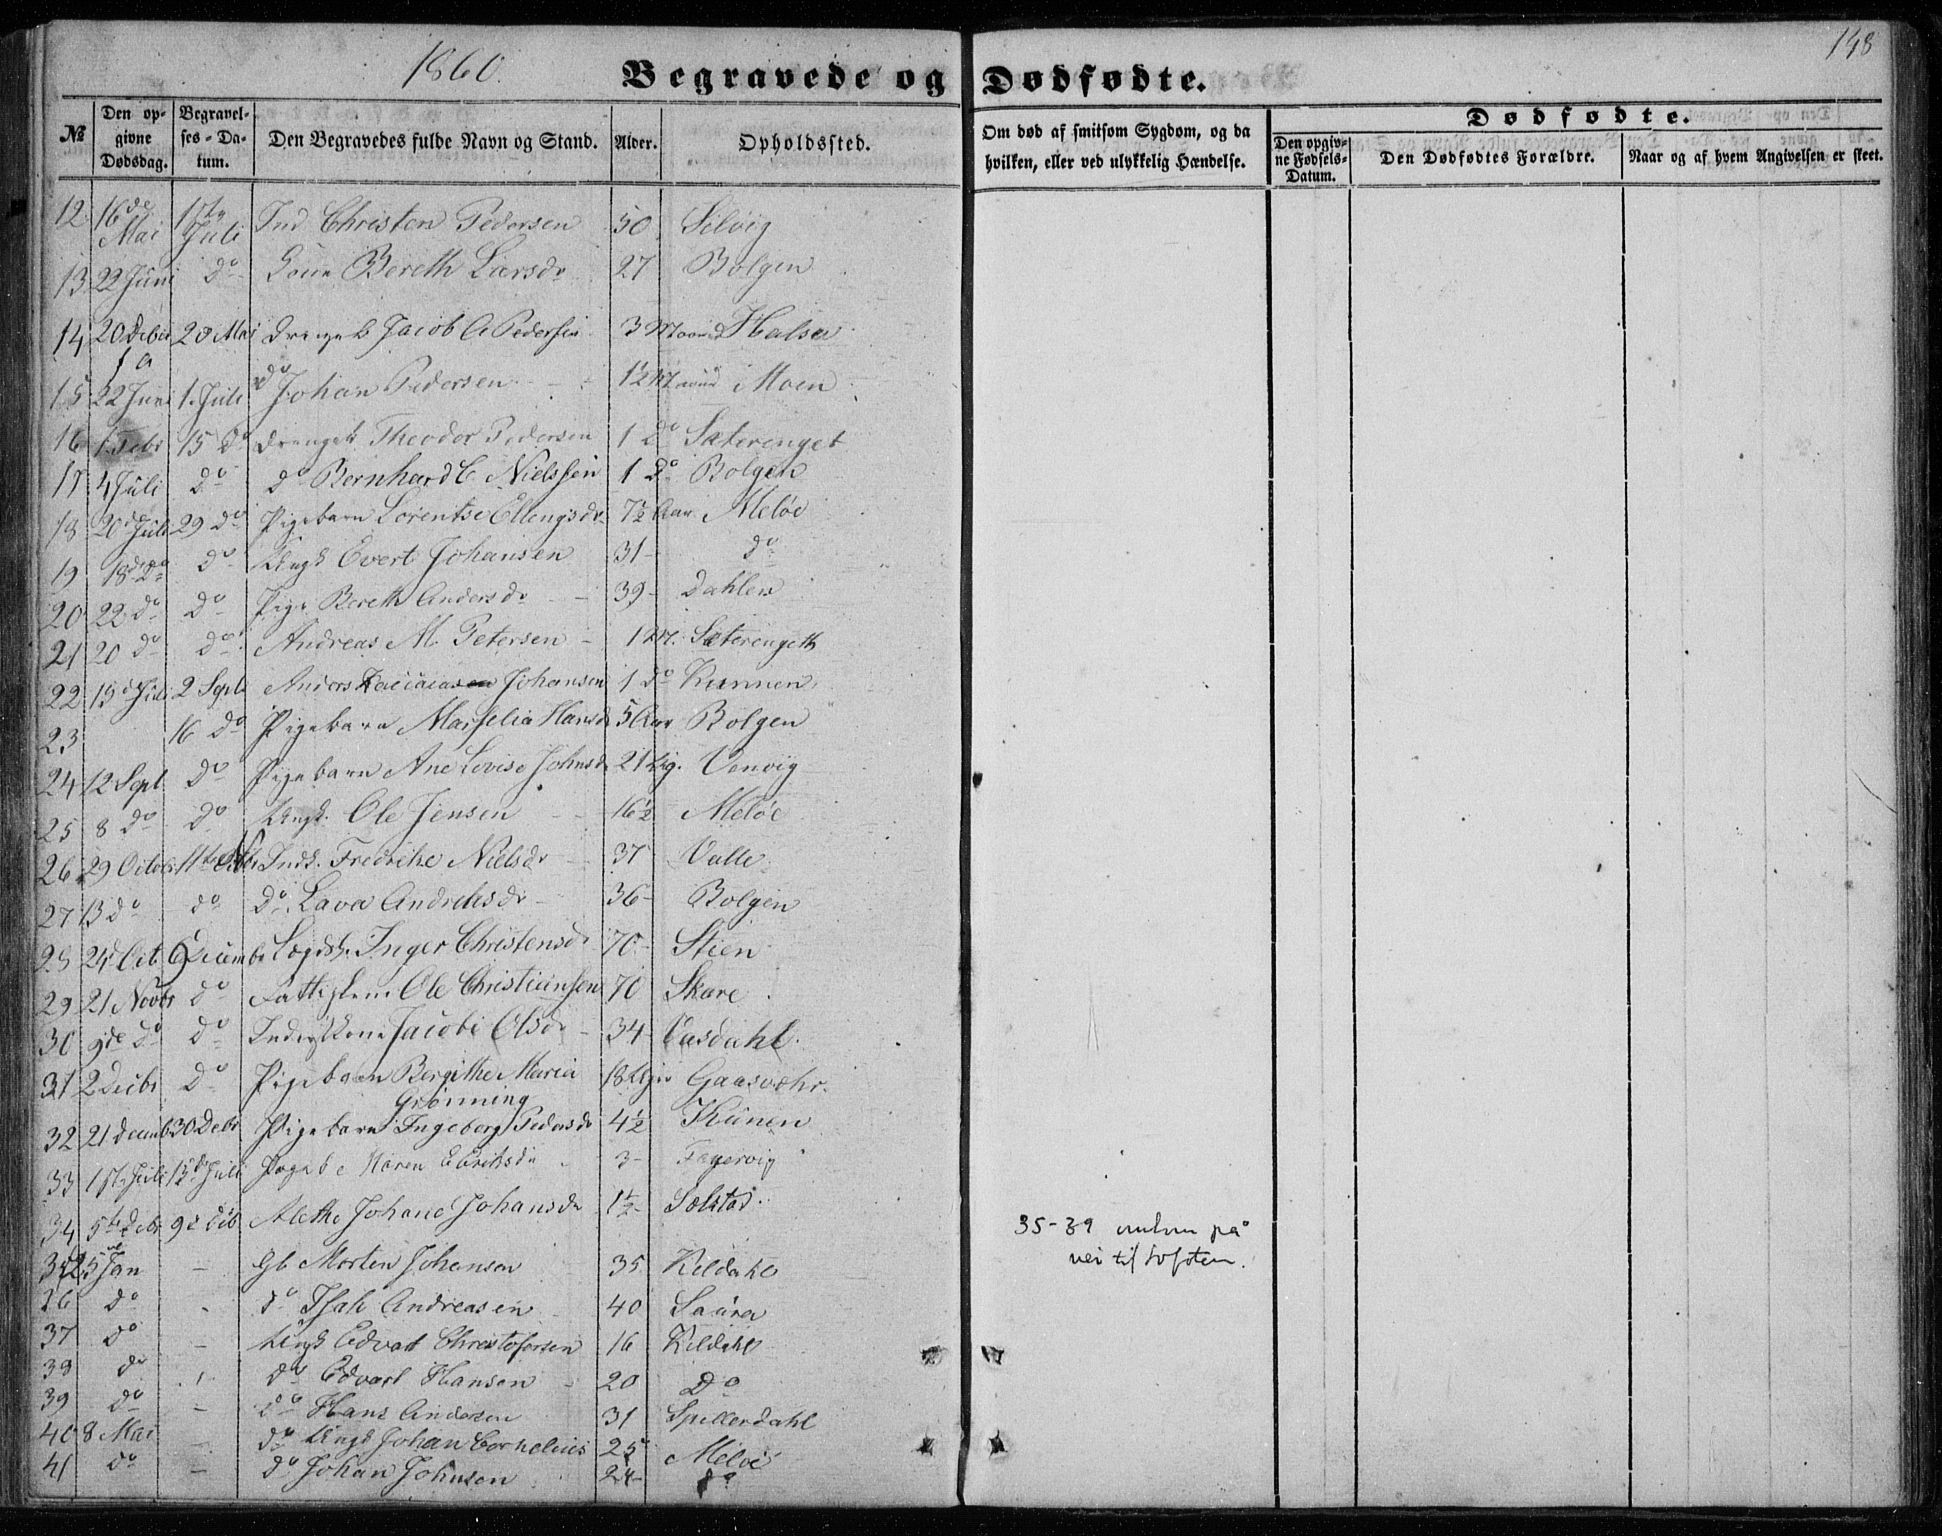 1860.
148
Begravede og Dødfødte.
№ Den opgivne Dødsdag. Begravelses-Datum. Den Begravedes fulde Navn og Stand. Alder. Opholdssted. Om død af smitsom Sygdom, og da hvilken, eller ved ulykkelig Hændelse. Dødfødte.
Den opgivne Fødsels-Datum. Den Dødfødtes Forældre. Naar og af hvem Angivelsen er skeet.
12 16de Mai 1ste Juli Ind Christen Pedersen 50 Selvig
13 22 Juni do Bereth Larsdr 27 Bolgen
14 20 Debr 20 Mai Drengeb Jacob A Pedersen 3 Maan Halsa
15 22 Juni 1. Juli do Johan Pedersen 1½ Maan Moen
16 15 do Drengeb Theodor Pedersen 1 do Sæterenget
17 4 Juli do do Bernhard C Nielssen 1 do Bolgen
18 20de Juli 29 do Pigebarn Lorentse Ellengsdr 7½ Aar Meløe
19 18de do do Ungk Evert Johansen 31 do
20 22 do do Pige Bereth Andersdr 39 Dahlen
21 20 do do Andreas M. Petersen 1 M. Sæterengeth
22 15 Juli 2 Sept Anders Johansen 1 do Kunnen
23 16 do Pigebarn Marselia Hansdr 5 Aar Bolgen
24 12 Sept do Pigebarn Ane Lovise Johnsdr 21 Dg. Venvig
25 8 do do Ungk. Ole Jensen 16½ Meløe
26 29 Octobr 11te Inds. Fredrike Nielsdr 37 Valle
27 13 do do do Lava Andreasdr 36 Bolgen
28 24 Oct 6 Decembr Logdsk. Inger Christensdr 70 Stien
29 21 Novbr do Fattiglem Ole Christiansen 70 Skare
30 9de do do Inderstkone Jacobi Olsdr 34 Oasdahl
31 2 Decbr do Pigebarn Bergithe Maria Grønning 18 Gaasværhr.
32 21 Decemb 30 Debr Pigebarn Ingeborg Pedersdr 4½ Kunen
33 1ste Juli 15de Juli Pigeb Karen E Eriksdr 3 Fagervig
34 5te Debr 9 Dcb Alethe Johane Johansdr 1½ Solstad
35 25 Jan – Gb Morten Johansen 35 Kildahl
35-39 omkom på
vei til Lofoten.
36 do do Isak Andreasen 40 Saura
37 do – Ungk Edvart Christofersen 16 Kildahl
38 do do Edvart Hansen 20 Do
39 do – do Hans Andersen 31 Spillerdahl
40 8 Mai – do Ungk Johan Cornelius 25 Meløe
41 do – do Johan Johnsen 24 do